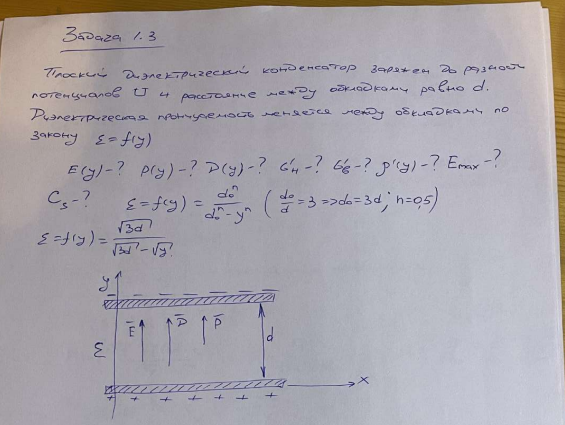 Задача 1.3
Плоский диэлектрический конденсатор заряжен до разности
потенциалов U и расстояние между обкладками равно d.
Диэлектрическая проницаемость меняется между обкладками по
закону ε=f(y)
E(y)-? P(y)-? D(y)-? σ'н-? σ'в-? ρ'(y)-? Emax-?
Cs-? ε=f(y)= d₀ⁿ/(d₀ⁿ-yⁿ) (d₀/d=3=>d₀=3d; n=0,5)
ε=f(y)= √3d/(√3d-√y)
y
- - - - - - -
E̅ D̅ P̅
ε d
x
+ + + + + + +